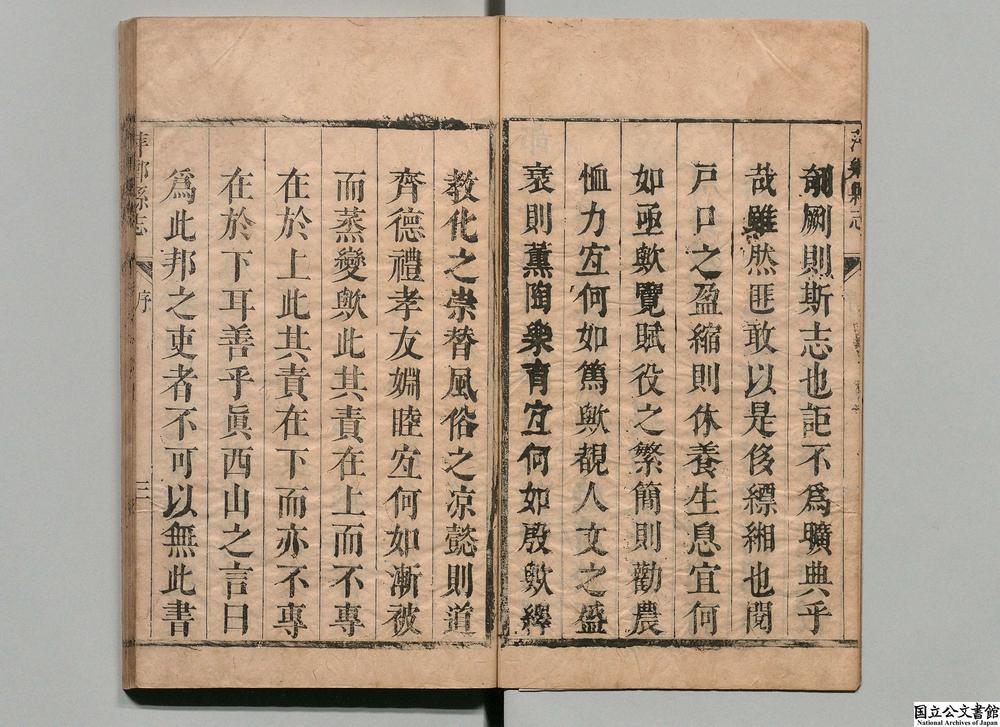 萍鄉縣志
剞劂則斯志也詎不為曠典乎
哉雖然匪敢以是侈縹緗也閱
戸口之盈縮則休養生息宜何
如亟歟覽賦役之繁簡則勸農
恤力宜何如篤歟覩人文之盛
衰則薰陶樂育宜何如殷歟繹
教化之崇替風俗之凉懿則道
齊德禮孝友婣睦宜何如漸被
而蒸變歟此其責在上而不專
在於上此其責在下而亦不專
在於下耳善乎眞西山之言曰
為此邦之吏者不可以無此書
萍鄉縣志 序 三
国立公文書館
National Archives of Japan